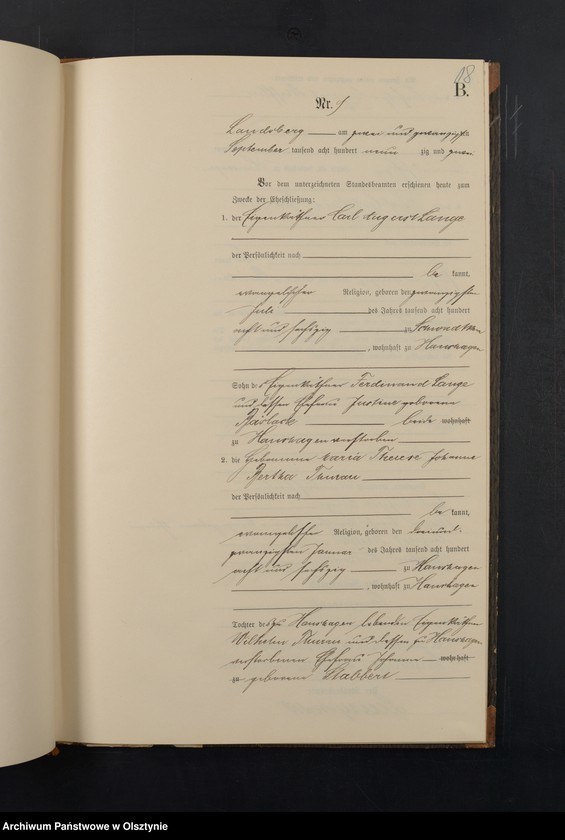 18
B.
Nr. 9
Landsberg am zwei und zwanzigsten
September tausend acht hundert neun zig und zwei
Vor dem unterzeichneten Standesbeamten erschienen heute zum
Zwecke der Eheschließung:
1. der Eigenkäthner Carl August Lange
der Persönlichkeit nach
be kannt,
evangelischer Religion, geboren den zwanzigsten
Juli des Jahres tausend acht hundert
acht und sechzig zu
, wohnhaft zu Hanshagen
Sohn des Eigenkäthner Ferdinand Lange
und dessen Ehefrau Justine geborene
beide wohnhaft
zu Hanshagen verstorben
2. die Maria Therese Johanne
Bertha Thurau
der Persönlichkeit nach
be kannt,
evangelischer Religion, geboren den dreiund-
zwanzigsten Januar des Jahres tausend acht hundert
acht und sechzig zu Hanshagen
, wohnhaft zu Hanshagen
Tochter des zu Hanshagen lebenden Eigenkäthner
Wilhelm Thurau und dessen zu Hanshagen
verstorbenen Ehefrau Johanne wohnhaft
zu geborene Stabbert
Archiwum Państwowe w Olsztynie